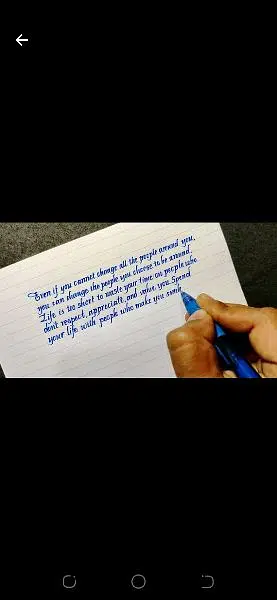 Even if you cannot change all the people around you,
you can change the people you choose to be around.
Life is too short to waste your time on people who
don't respect, appreciate, and value you. Spend
your life with people who make you smile